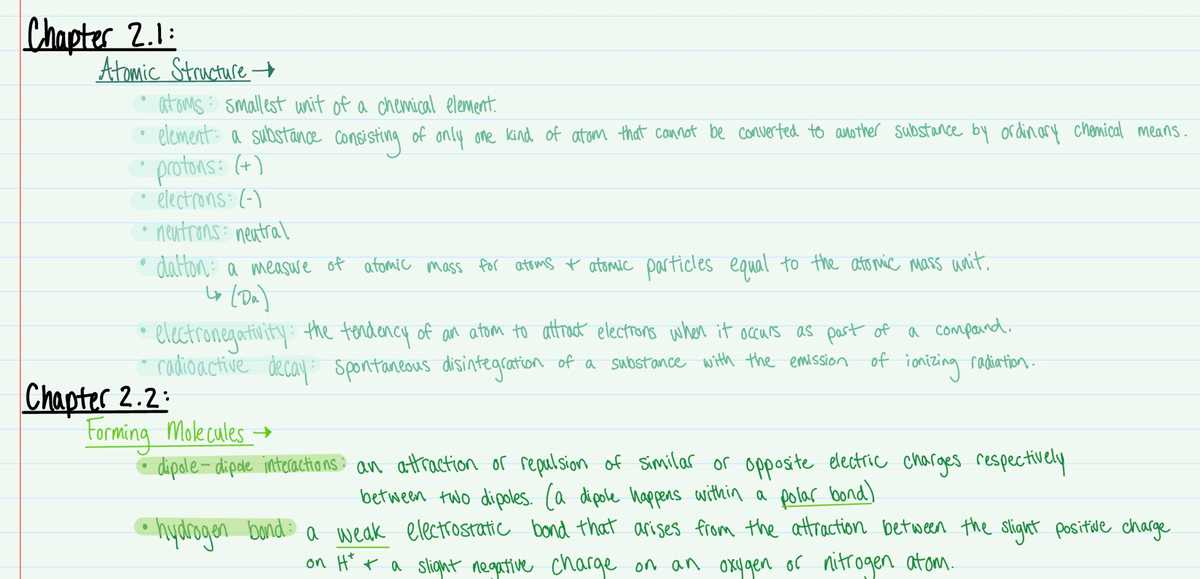 Chapter 2.1:
Atomic Structure →
• atoms: smallest unit of a chemical element.
• element: a substance consisting of only one kind of atom that cannot be converted to another substance by ordinary chemical means.
• protons: (+)
• electrons: (-)
• neutrons: neutral
• dalton: a measure of atomic mass for atoms + atomic particles equal to the atomic mass unit.
↳ (Da)
• electronegativity: the tendency of an atom to attract electrons when it occurs as part of a compound.
• radioactive decay: spontaneous disintegration of a substance with the emission of ionizing radiation.
Chapter 2.2:
Forming Molecules →
• dipole-dipole interactions: an attraction or repulsion of similar or opposite electric charges respectively
between two dipoles. (a dipole happens within a polar bond)
• hydrogen bond: a weak electrostatic bond that arises from the attraction between the slight positive charge
on H⁺ + a slight negative charge on an oxygen or nitrogen atom.